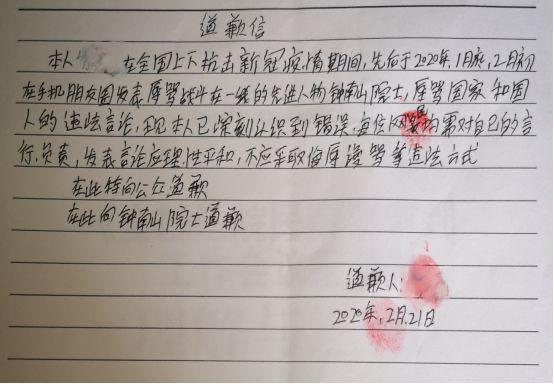 道歉信
本人 在全国上下抗击新冠疫情期间,先后于2020年1月底,2月初
在手机朋友圈发表辱骂战斗在一线的先进人物钟南山院士,辱骂国家和国
人的违法言论,现本人已深刻认识到错误,每位网民均需对自己的言
行负责,发表言论应理性平和,不应采取侮辱谩骂等违法方式
在此特向公众道歉
在此向钟南山院士道歉
道歉人:
2020年,2月.21日